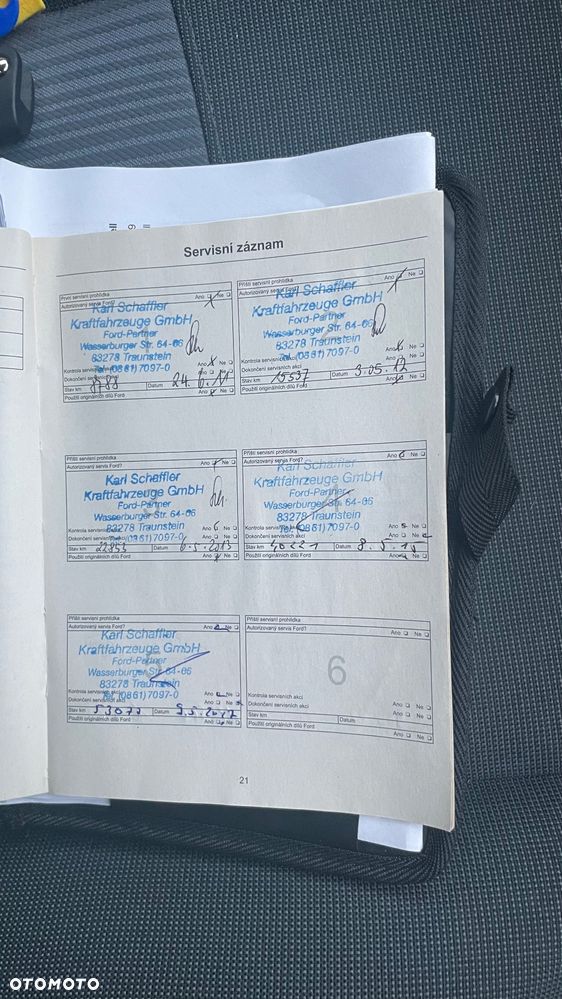 Servisní záznam
První servisní prohlídka
Autorizovaný servis Ford?
Ano Ne
Karl Schaffler
Kraftfahrzeuge GmbH
Ford-Partner
Wasserburger Str. 64-66
83278 Traunstein
Tel. (0861) 7097-0
Kontrola servisních akcí
Ano Ne
Dokončení servisních akcí
Ano Ne
Stav km 8788 Datum 24.6.11
Použití originálních dílů Ford
Ano Ne
Příští servisní prohlídka
Autorizovaný servis Ford?
Ano Ne
Karl Schaffler
Kraftfahrzeuge GmbH
Ford-Partner
Wasserburger Str. 64-66
83278 Traunstein
Tel. (0861) 7097-0
Kontrola servisních akcí
Ano Ne
Dokončení servisních akcí
Ano Ne
Stav km 15537 Datum 3.05.12
Použití originálních dílů Ford
Ano Ne
Příští servisní prohlídka
Autorizovaný servis Ford?
Ano Ne
Karl Schaffler
Kraftfahrzeuge GmbH
Ford-Partner
Wasserburger Str. 64-66
83278 Traunstein
Tel. (0861) 7097-0
Kontrola servisních akcí
Ano Ne
Dokončení servisních akcí
Ano Ne
Stav km Datum 6.5.2013
Použití originálních dílů Ford
Příští servisní prohlídka
Autorizovaný servis Ford?
Ano Ne
Karl Schaffler
Kraftfahrzeuge GmbH
Ford-Partner
Wasserburger Str. 64-66
83278 Traunstein
Tel. (0861) 7097-0
Kontrola servisních akcí
Ano Ne
Dokončení servisních akcí
Ano Ne
Stav km 40221 Datum
Použití originálních dílů Ford
Ano Ne
Příští servisní prohlídka
Autorizovaný servis Ford?
Ano Ne
Karl Schaffler
Kraftfahrzeuge GmbH
Ford-Partner
Wasserburger Str. 64-66
83278 Traunstein
Tel. (0861) 7097-0
Kontrola servisních akcí
Ano Ne
Dokončení servisních akcí
Ano Ne
Stav km Datum
Použití originálních dílů Ford
Ano Ne
Příští servisní prohlídka
Autorizovaný servis Ford?
Ano Ne
6
Kontrola servisních akcí
Ano Ne
Dokončení servisních akcí
Ano Ne
Stav km Datum
Použití originálních dílů Ford
Ano Ne
21
OTOMOTO